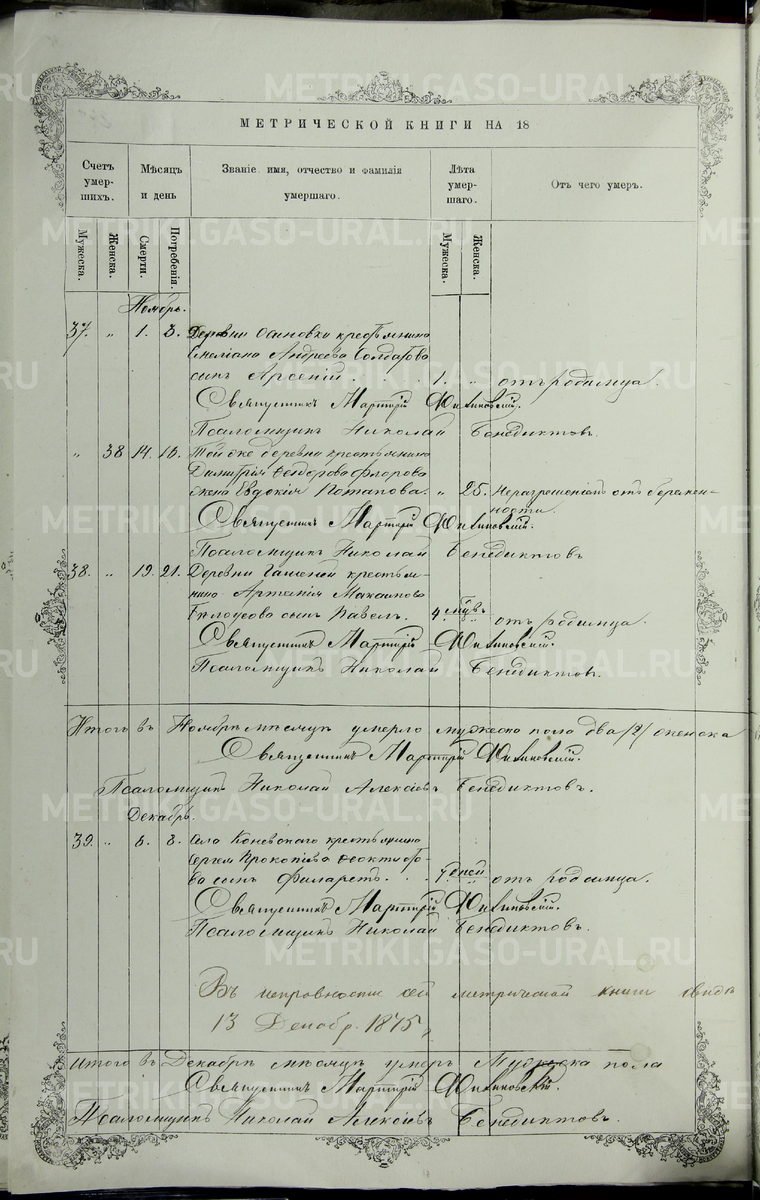 METRIKI.GASO-URAL.RU
МЕТРИЧЕСКОЙ КНИГИ НА 18
Счетъ умер- шихъ.
Мѣсяцъ и день
Званіе, имя, отчество и фамилія умершаго.
Лѣта умер- шаго.
Отъ чего умеръ.
Мужеска.
Женска.
Смерти.
Погребенія.
Мужеска.
Женска.
Ноябрь.
37. " 1. 3. Деревни Осиновки крестьянина
Емеліана Андреева Солдатова
сынъ Арсеній . . . 1. " отъ родимца.
Священникъ Мартирій
Псаломщикъ Николай Бенедиктовъ.
" 38 14. 16. Той же деревни крестьянина
Димитрія Ѳеодорова Флорова
жена Евдокія Потапова. " 25. Неразрешеніемъ отъ беремен-
ности.
Священникъ Мартирій
Псаломщикъ Николай Бенедиктовъ
38. " 19. 21. Деревни крестья-
нина Артемія Максимова
Бѣлоусова сынъ Павелъ. 4 мѣс. " отъ родимца.
Священникъ Мартирій
Псаломщикъ Николай Бенедиктовъ.
Итого въ Ноябрѣ мѣсяцѣ умерло мужеска пола два /2/ женска
Священникъ Мартирій
Псаломщикъ Николай Алексіевъ Бенедиктовъ.
Декабрь.
39. " 6. 8. Села Коневскаго крестьянина
Сергея Прокопіева Ѳеоктисто-
ва сынъ Филаретъ. . . 7 дней отъ родимца.
Священникъ Мартирій
Псаломщикъ Николай Бенедиктовъ.
Въ исправности сей метрической книги свидѣ
13 Декабр. 1875 г.
Итого въ Декабрѣ мѣсяцѣ умеръ Мужеска пола
Священникъ Мартирій
Псаломщикъ Николай Алексіевъ Бенедиктовъ.